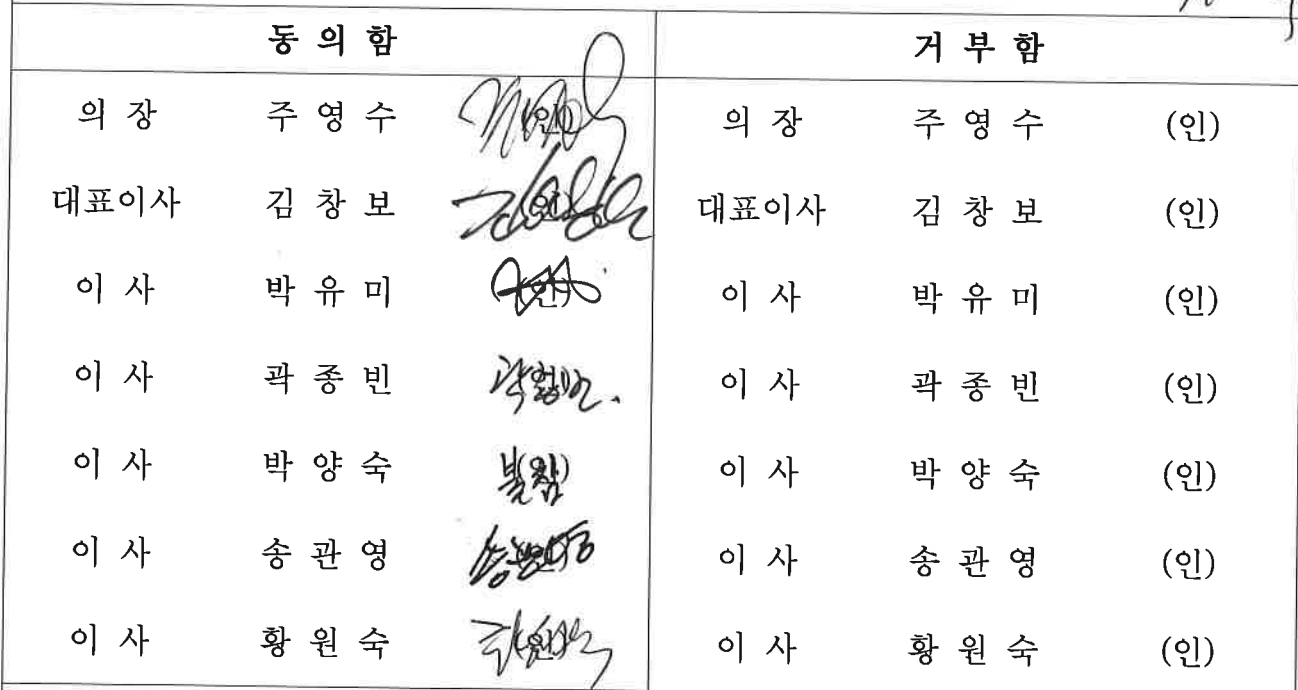 동 의 함 거 부 함
의 장 주 영 수 (인) 의 장 주 영 수 (인)
대표이사 김 창 보 (인) 대표이사 김 창 보 (인)
이 사 박 유 미 (인) 이 사 박 유 미 (인)
이 사 곽 종 빈 이 사 곽 종 빈 (인)
이 사 박 양 숙 불참 이 사 박 양 숙 (인)
이 사 송 관 영 이 사 송 관 영 (인)
이 사 황 원 숙 이 사 황 원 숙 (인)